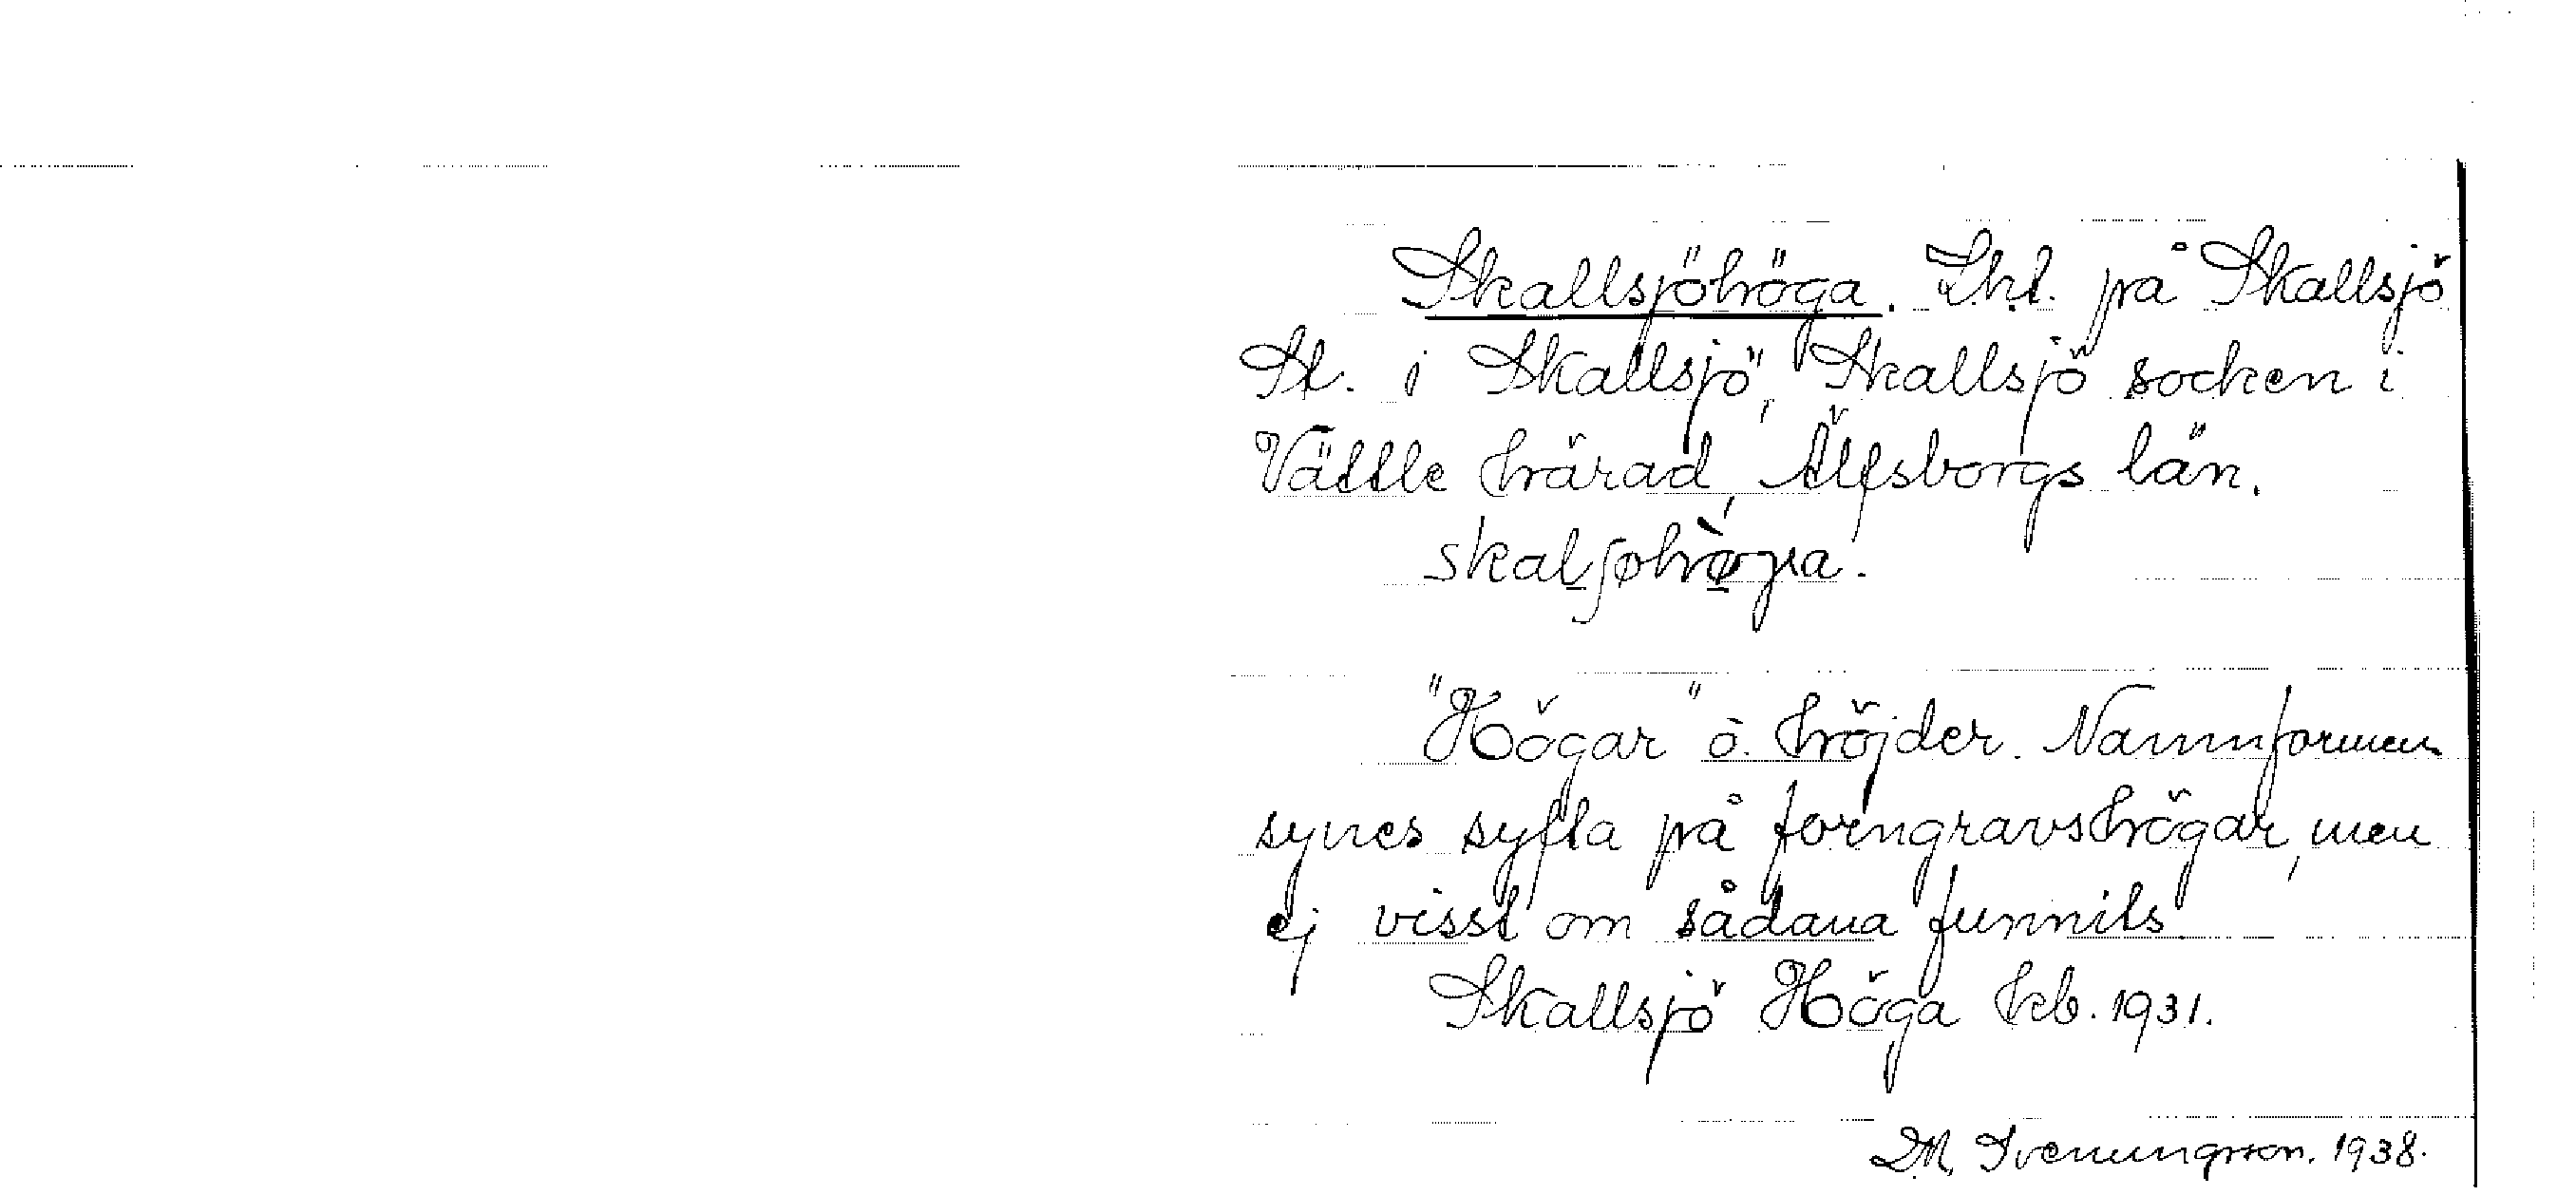 Skallsjöhöga. Lht. på Skallsjö
St. i Skallsjö, Skallsjö socken i
Vättle härad, Älfsborgs län.
skalʃøhø̀ga.
"Högar" o. höjder. Namnformen
synes syfta på forngravshögar, men
ej visst om sådana funnits.
Skallsjö Höga kb. 1931.
D.M. Svenungsson. 1938.